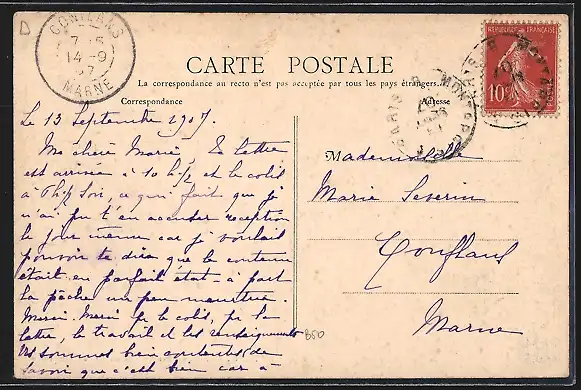 D
CONFLANS
7-15
14-9
07
MARNE
CARTE POSTALE
La correspondance au recto n'est pas acceptée par tous les pays étrangers...
Correspondance
Adresse
REPUBLIQUE FRANÇAISE
10
Le 13 Septembre 1907.
Ma chère Marie Ta lettre
est arrivée à 10 h 1/2 et le colis
à 7 h 1/2 Soir, ce qui fait que je
n'ai pu t'en accuser reception
le jour même car je voulais
pouvoir te dire que le contenu
était en parfait état - à part
la pêche un peu meurtrie.
Merci. Merci pr le colis, pr la
lettre, le travail et les renseignements
sommes bien contents de
savoir que c'est bien car à
Mademoiselle
Marie Severin
Conflans
Marne
B50